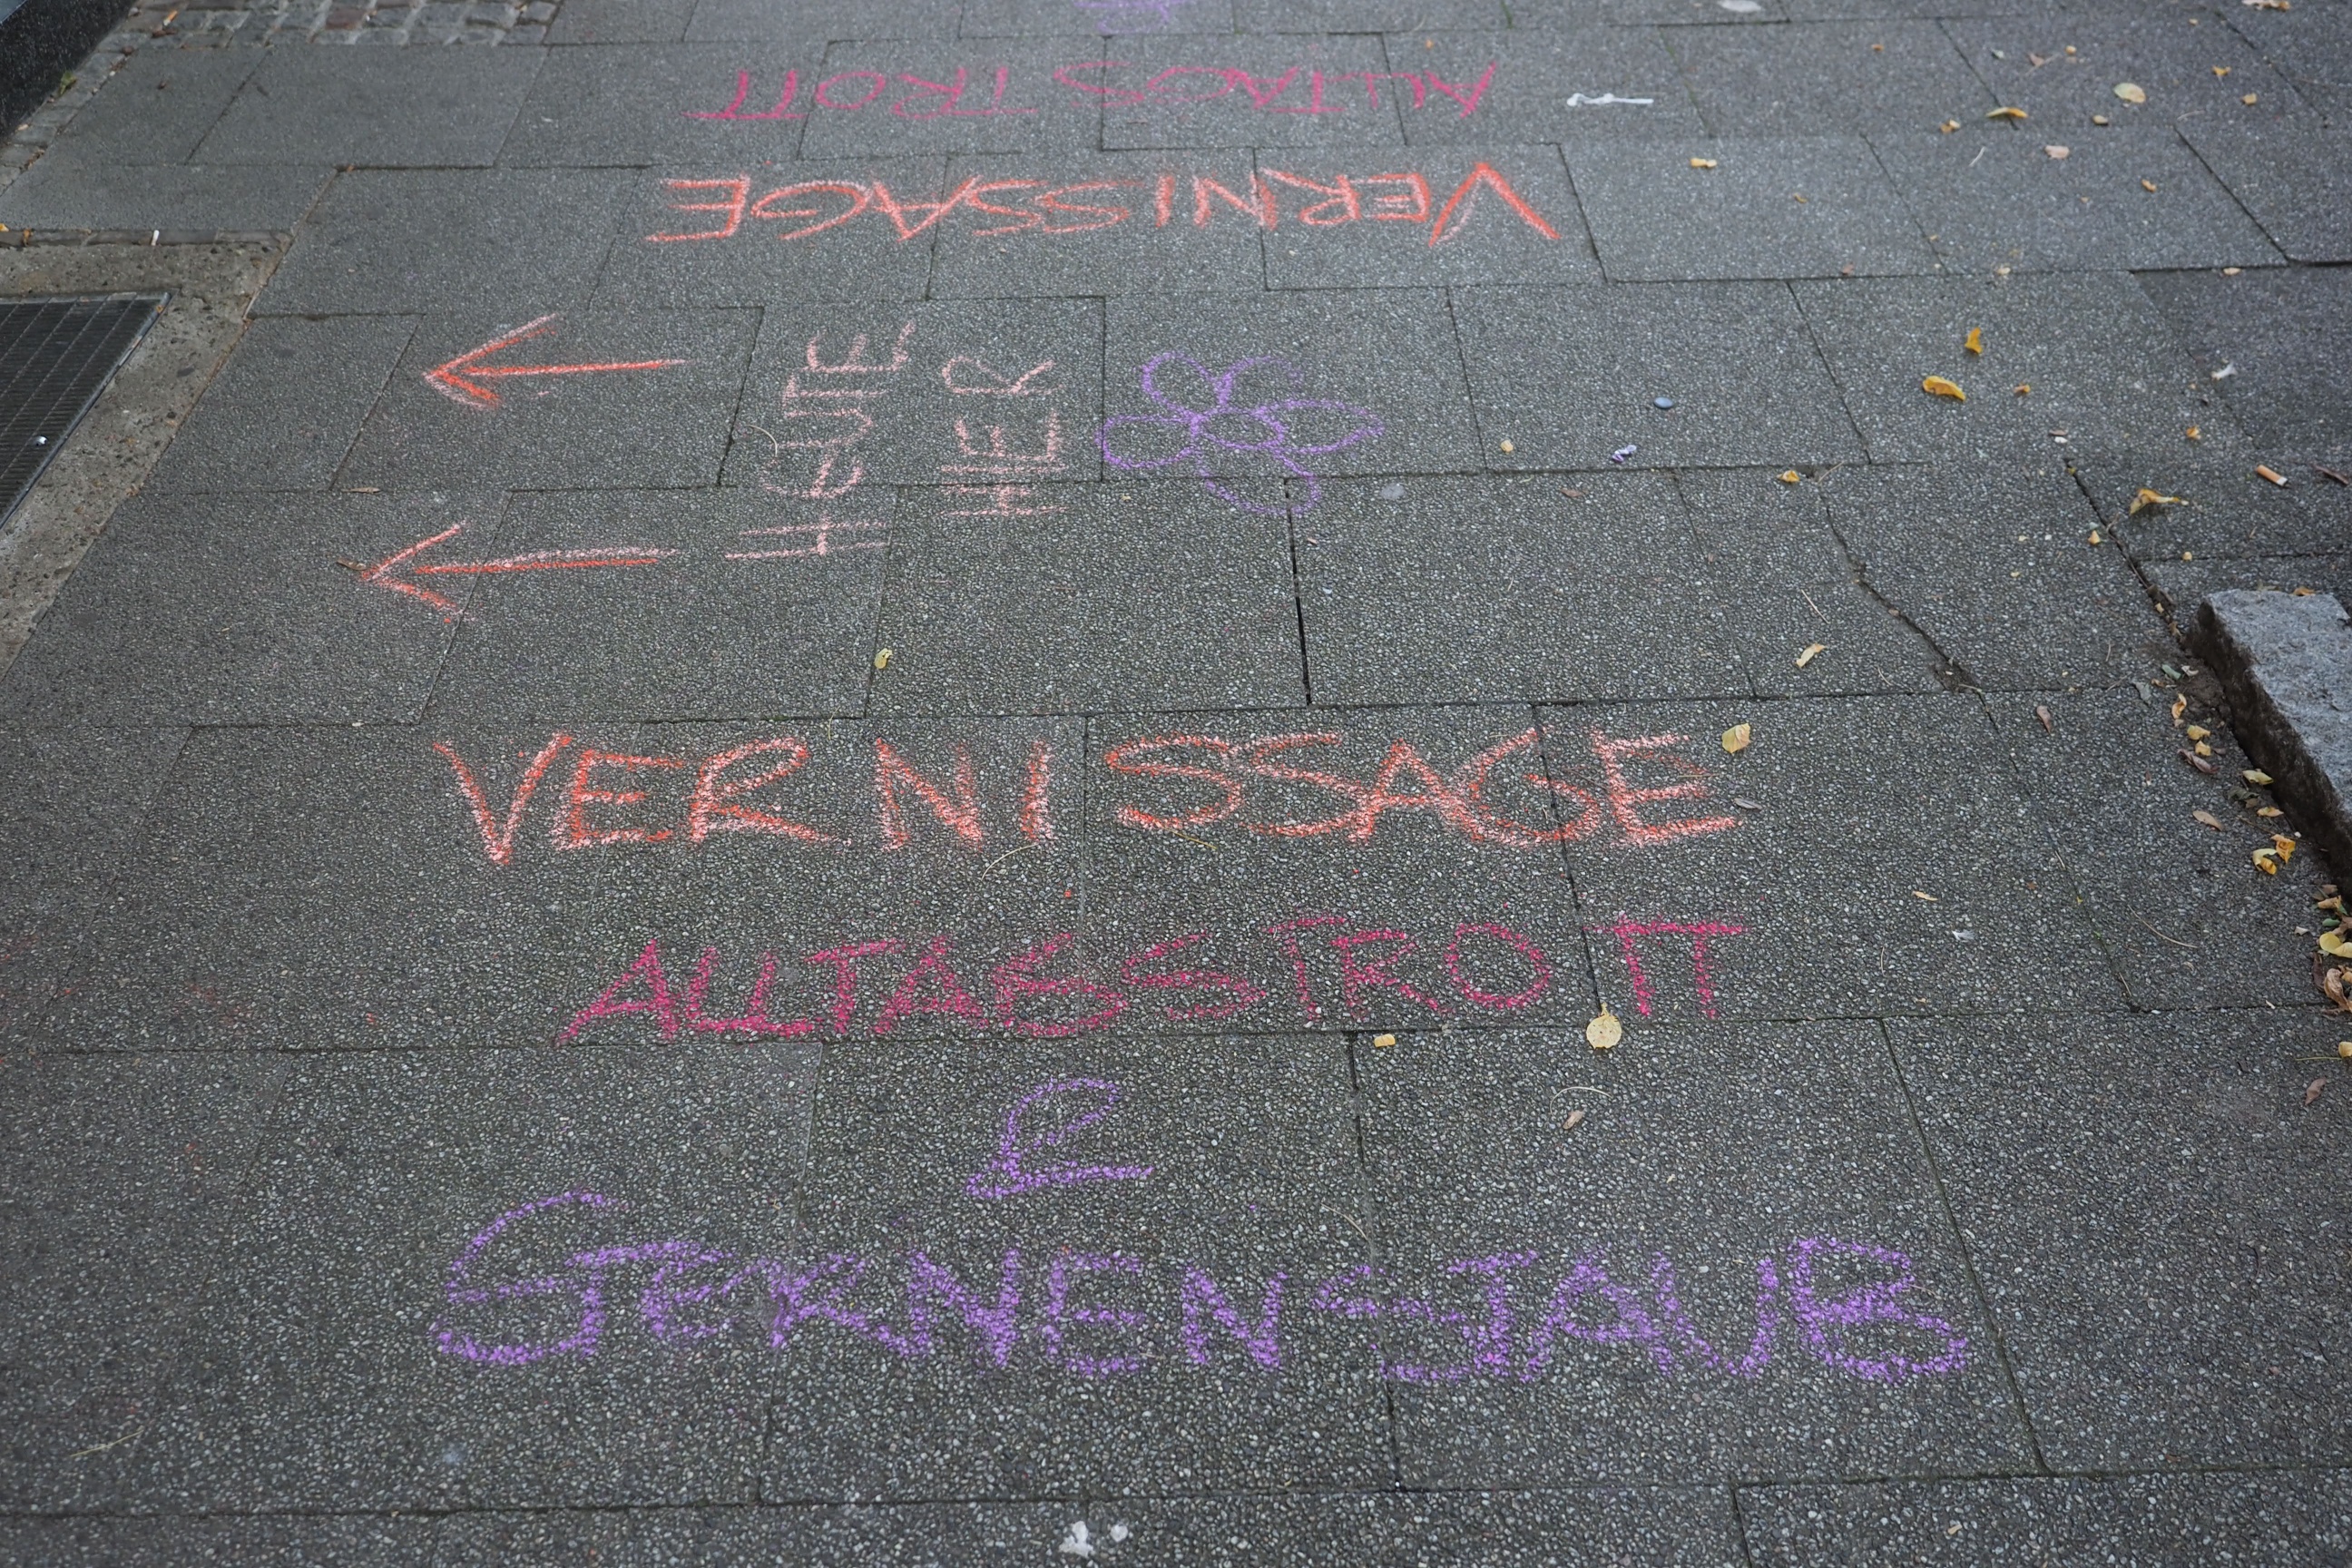 ALLTAGSTROTT
VERNISSAGE
HEUTE
HIER
VERNISSAGE
ALLTAGSTROTT
&
STERNENSTAUB